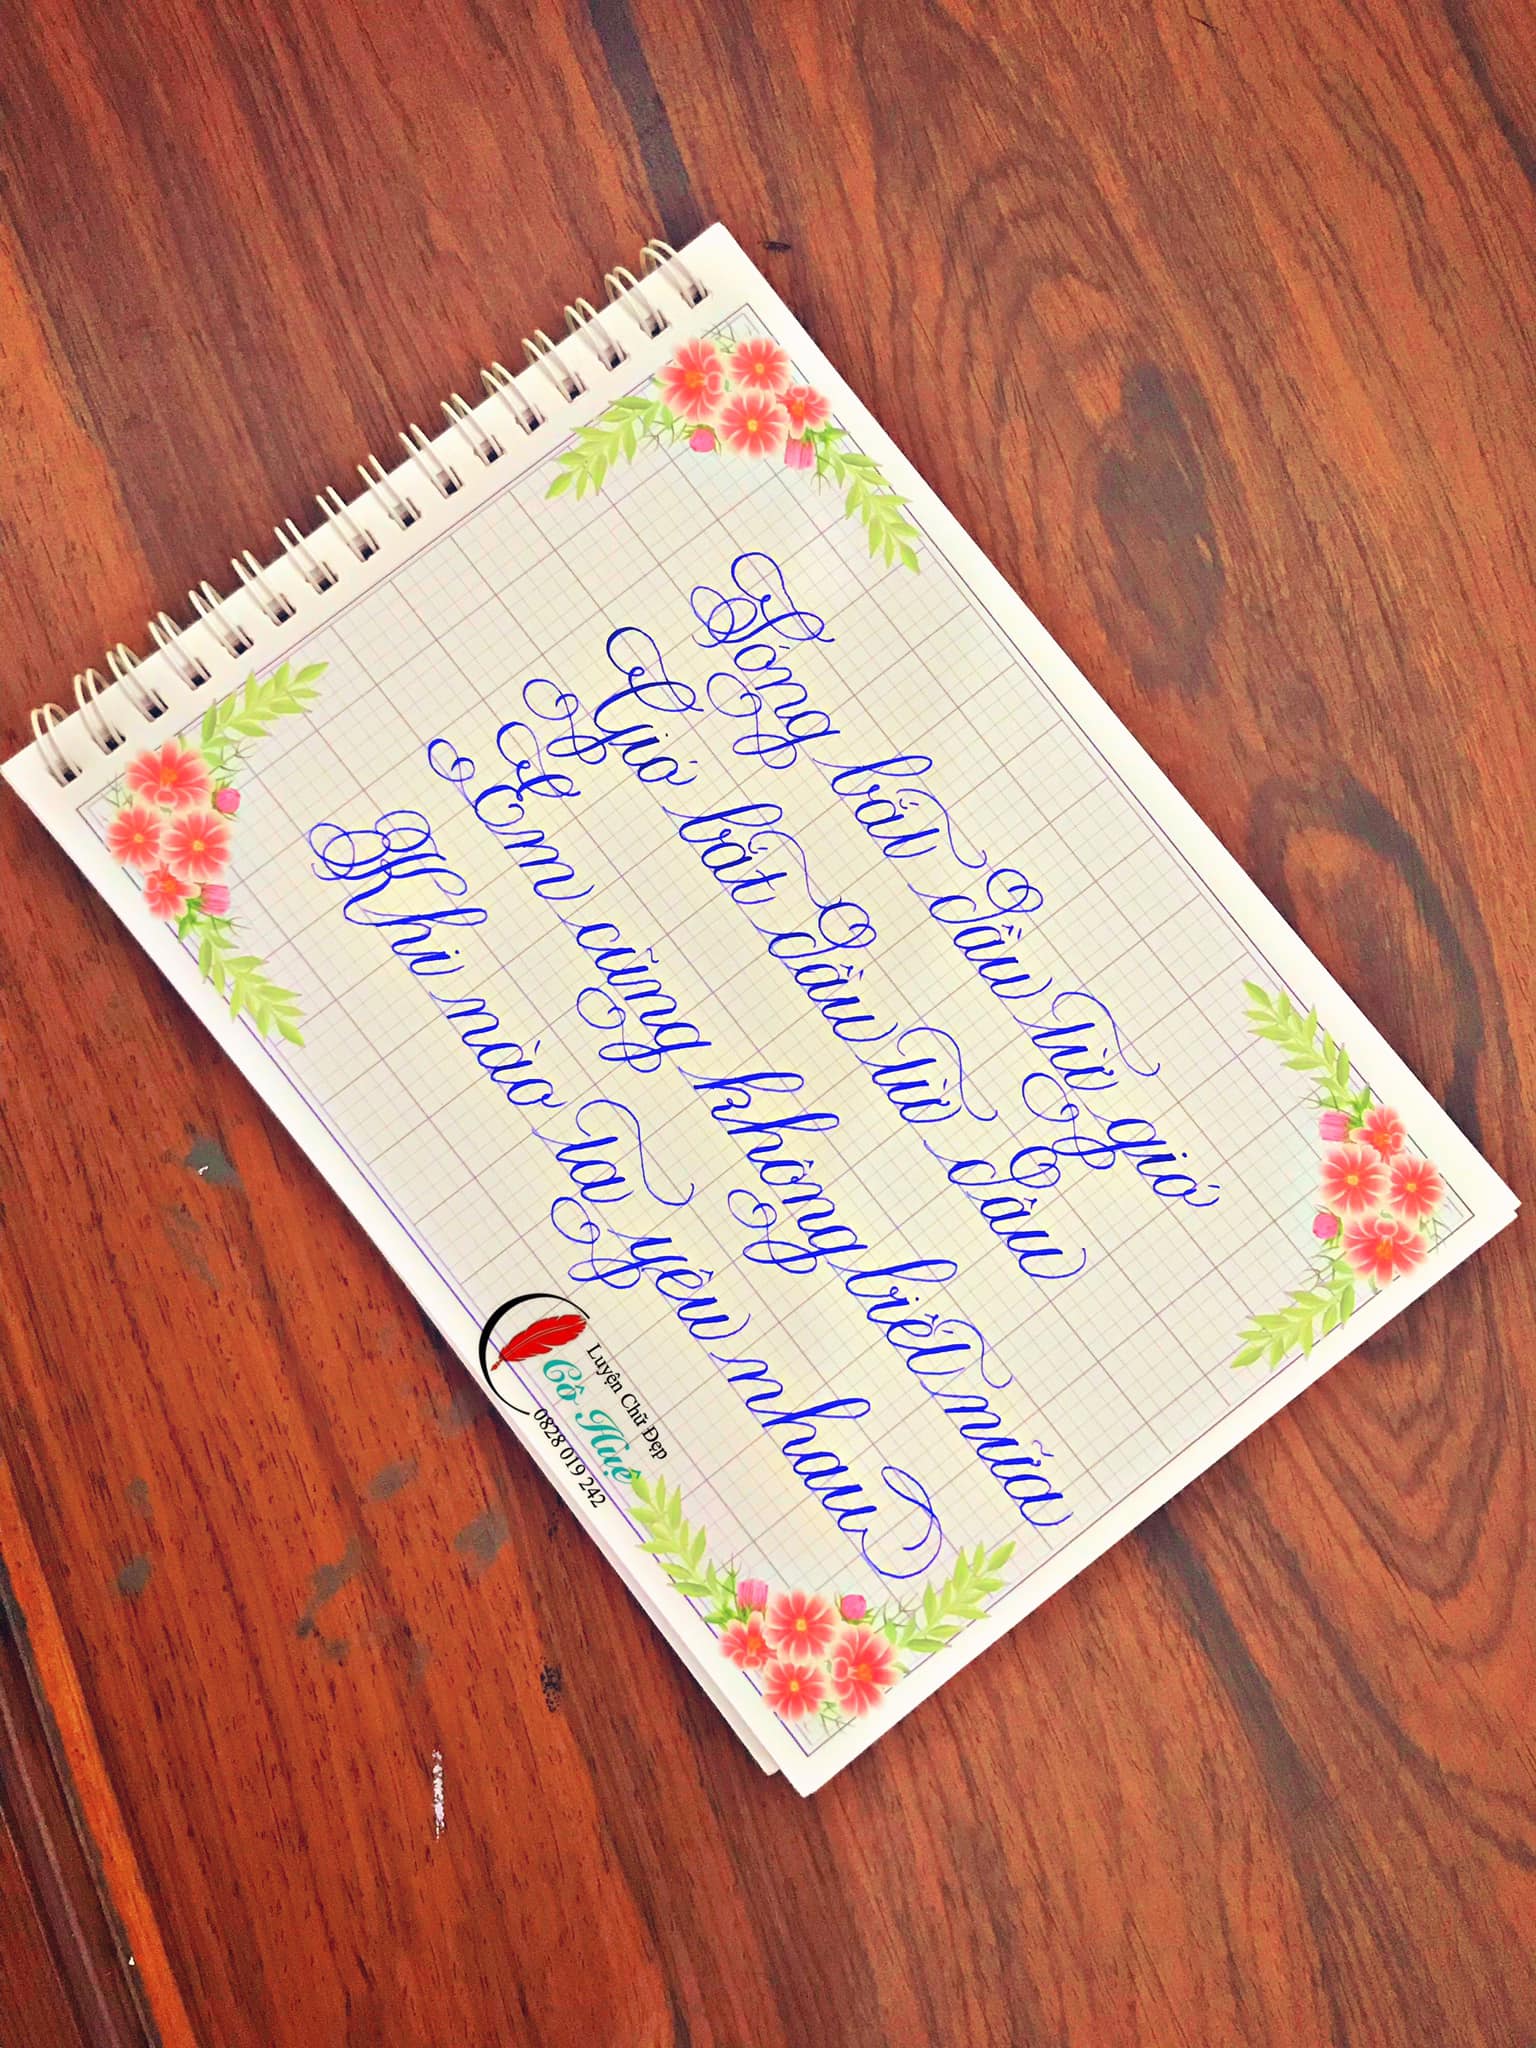 Sóng bắt đầu từ gió
Gió bắt đầu từ đâu
Em cũng không biết nữa
Khi nào ta yêu nhau
Luyện Chữ Đẹp
Cô Huệ
0828 019 242